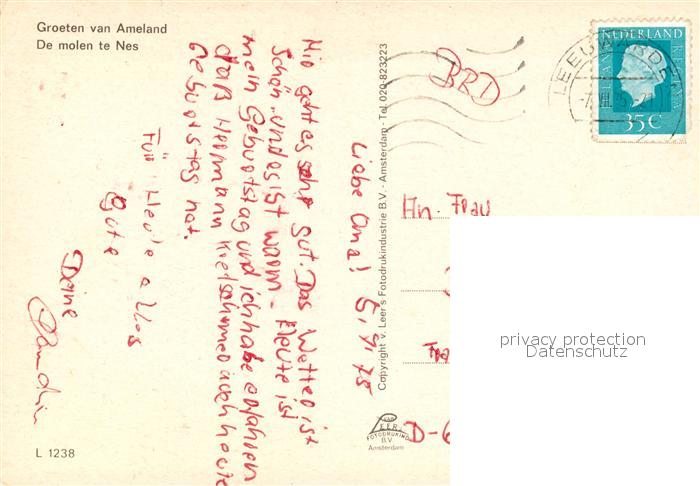 Groeten van Ameland
De molen te Nes
BRD
NEDERLAND
35 C
LEEUWARDEN
Copyright v. Leer's Fotodrukindustrie B.V. - Amsterdam - Tel 020-823223
Liebe Oma!
Mir geht es sehr gut. Das Wetter ist
Schön und es ist warm. Heute ist
mein Geburtstag und ich habe erfahren
daß Hermann Kretschmer auch heute
Geburtstag hat.
Für Heute alles
gute
Deine
An. Frau
D-6
VAN
LEER
FOTODRUKIND
B.V.
Amsterdam
L 1238
privacy protection
Datenschutz